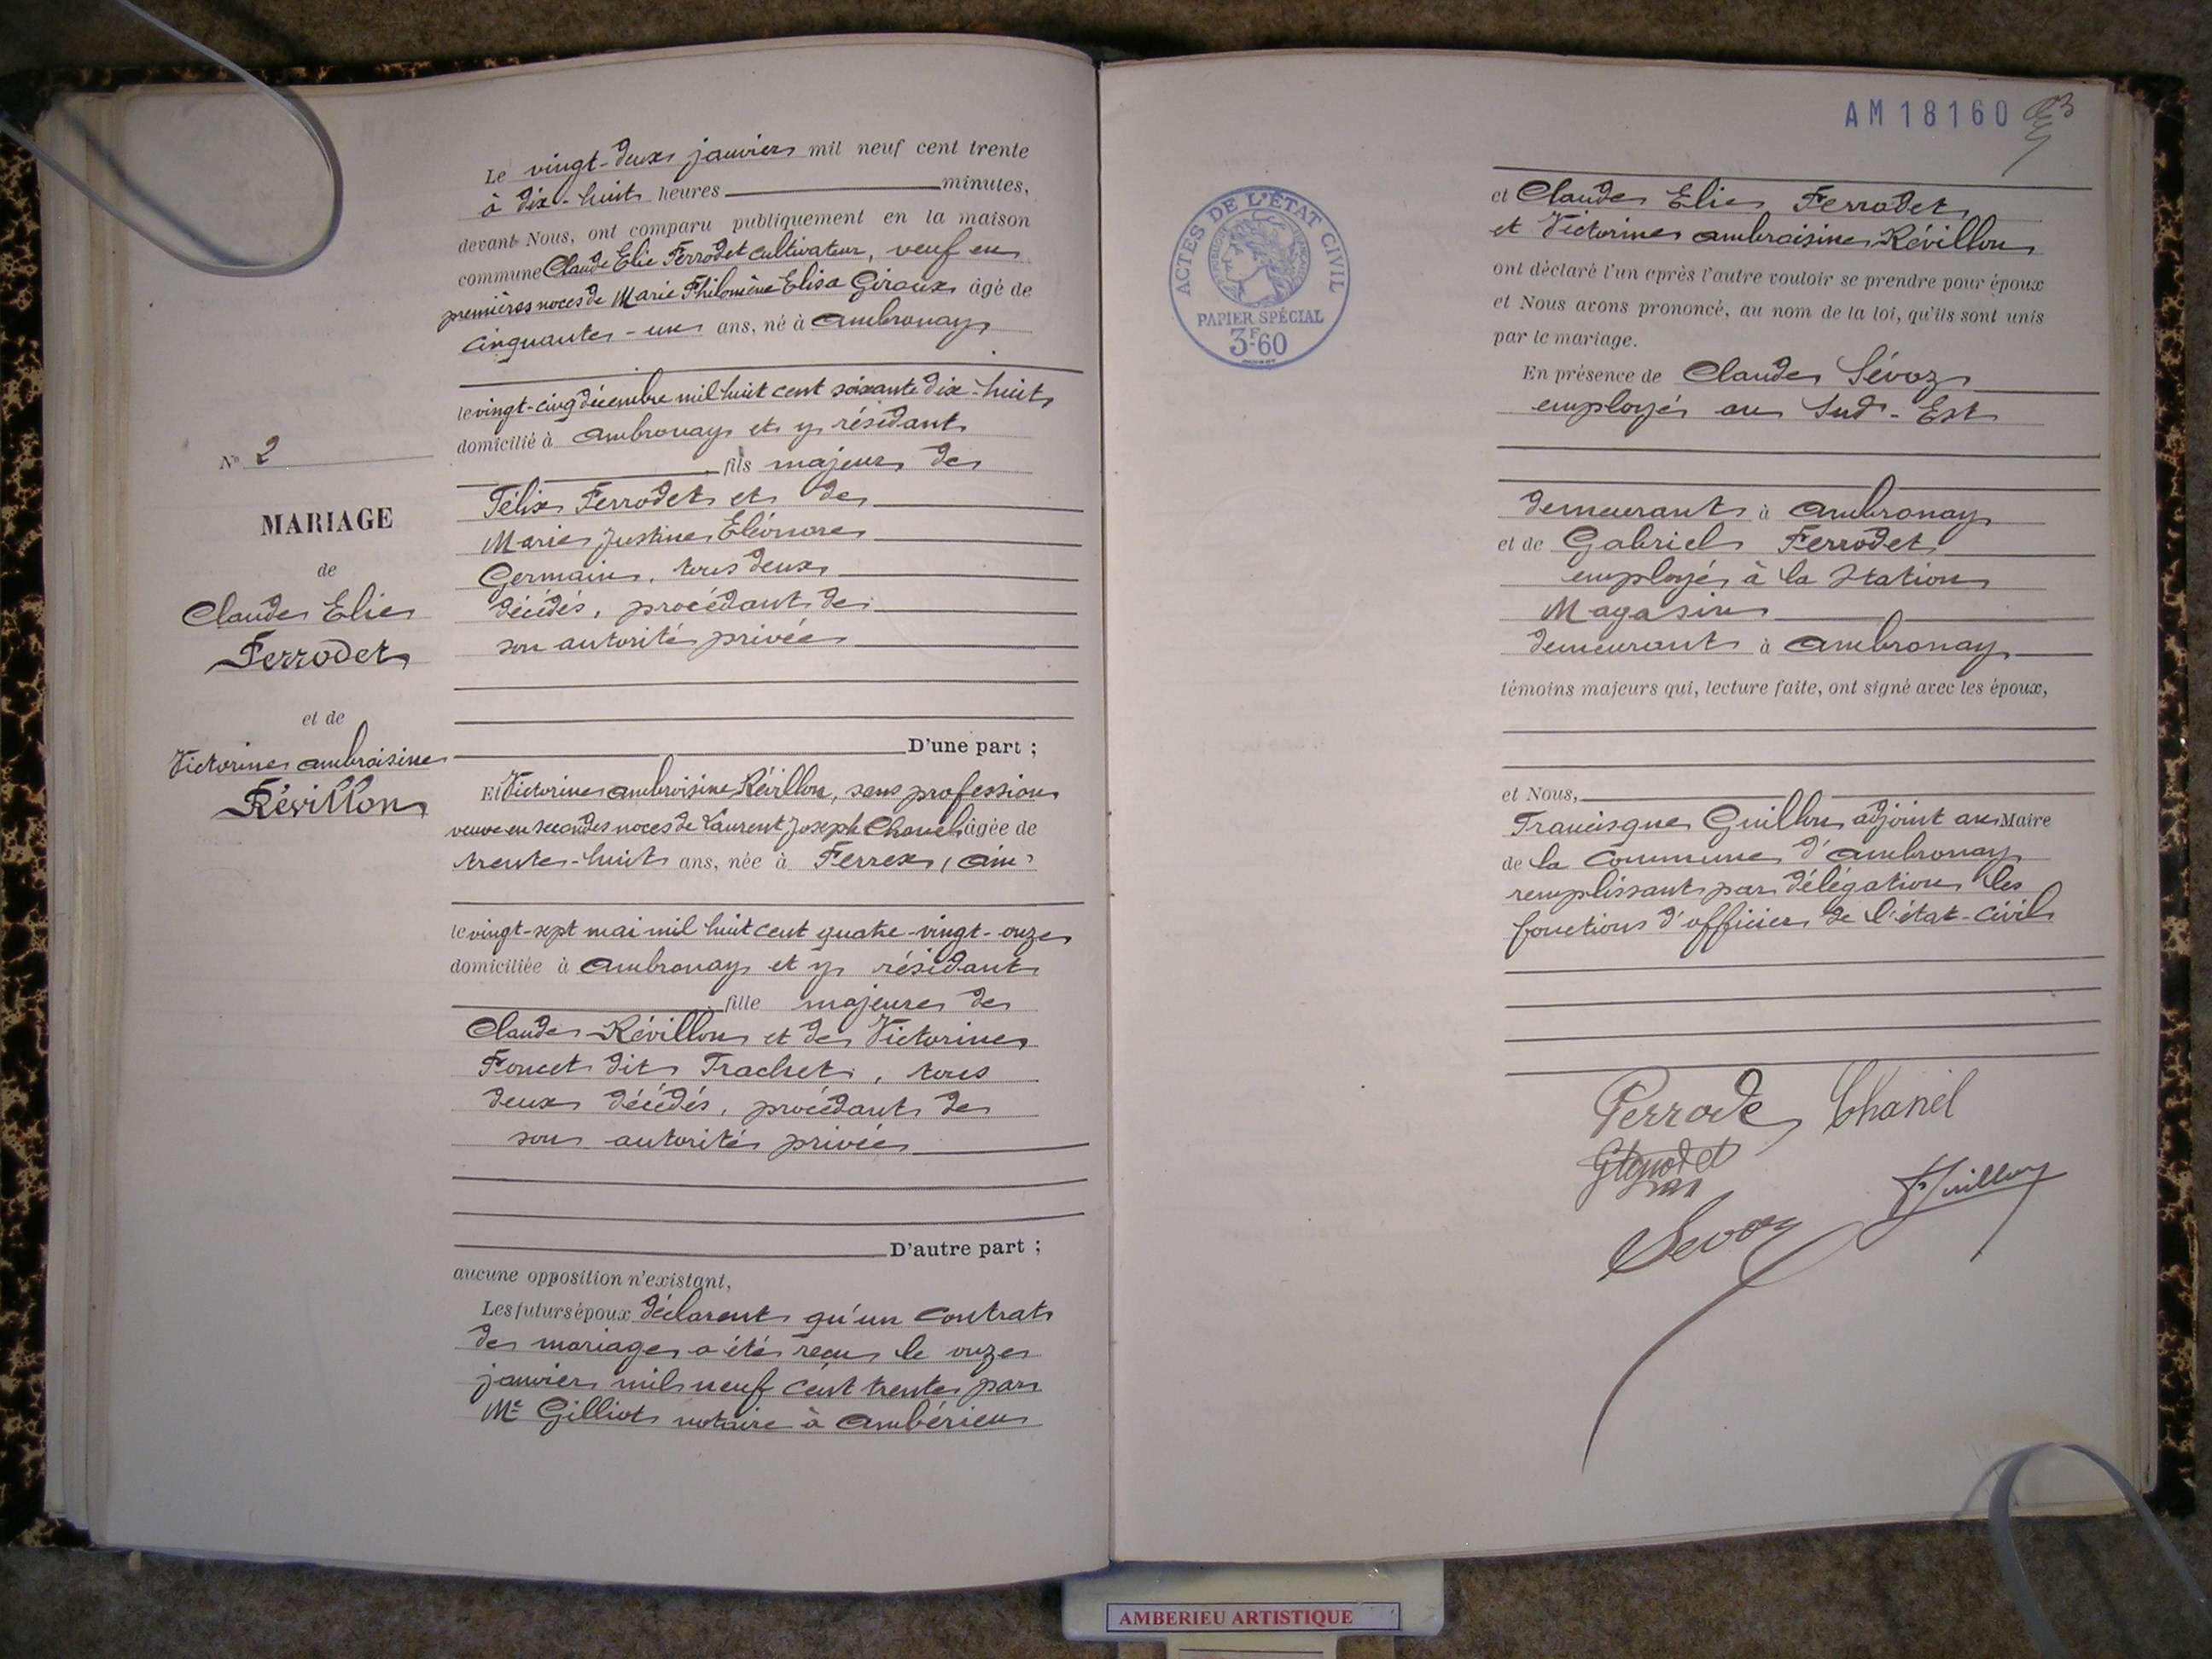 Le vingt-deux janvier mil neuf cent trente
à dix-huit heures minutes,
devant Nous, ont comparu publiquement en la maison
commune Claude Elie Ferrodet cultivateur, veuf en
premières noces de Marie Philomène Elisa Giroux âgé de
cinquante-un ans, né à Ambronay
le vingt-cinq décembre mil huit cent soixante dix-huit
domicilié à Ambronay et y résidant
fils majeur de
Félix Ferrodet et de
Marie Justine Eléonore
Germain, tous deux
décédés, procédant de
son autorité privée
D'une part ;
N° 2
MARIAGE
de
Claude Elie
Ferrodet
et de
Victorine Ambroisine
Révillon
Et Victorine Ambroisine Révillon, sans profession
veuve en secondes noces de Laurent Joseph Chanel âgée de
trente-huit ans, née à Ferrex, (Ain)
le vingt-sept mai mil huit cent quatre-vingt-onze
domiciliée à Ambronay et y résidant
fille majeure de
Claude Révillon et de Victorine
Foncet dit Trachet, tous
deux décédés, procédant de
son autorité privée
D'autre part ;
aucune opposition n'existant,
Les futurs époux déclarent qu'un contrat
de mariage a été reçu le onze
janvier mil neuf cent trente par
Me Gilliot notaire à Ambérieu
AM 18160
ACTES DE L'ÉTAT CIVIL
RÉPUBLIQUE FRANÇAISE
PAPIER SPÉCIAL
3F.60
et Claude Elie Ferrodet
et Victorine Ambroisine Révillon
ont déclaré l'un après l'autre vouloir se prendre pour époux
et Nous avons prononcé, au nom de la loi, qu'ils sont unis
par le mariage.
En présence de Claude Sévoz
employé au Sud-Est
demeurant à Ambronay
et de Gabriel Ferrodet
employé à la Station
Magasin
demeurant à Ambronay
témoins majeurs qui, lecture faite, ont signé avec les époux,
et Nous,
Francisque Guillon adjoint au Maire
de la Commune d'Ambronay
remplissant par délégation les
fonctions d'officier de l'état-civil
Ferrodet Chanel
F. Guillon
Sevoz
AMBERIEU ARTISTIQUE